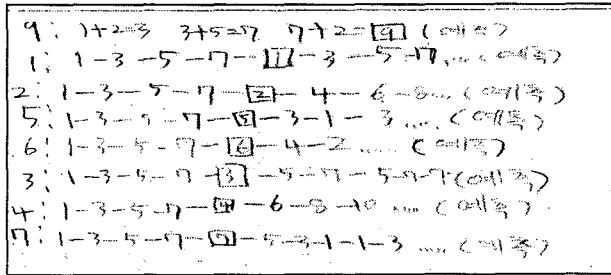 9: 1+2=3 3+5=7 7+2=9 (예측)
1: 1-3-5-7-1-3-5-7..... (예측)
2: 1-3-5-7-2-4-6-8... (예측)
5: 1-3-5-7-5-3-1-3.... (예측)
6: 1-3-5-7-6-4-2..... (예측)
3: 1-3-5-7-3-5-7-5-7-7 (예측)
4: 1-3-5-7-4-6-8-10.... (예측)
7: 1-3-5-7-7-5-3-1-1-3.... (예측)